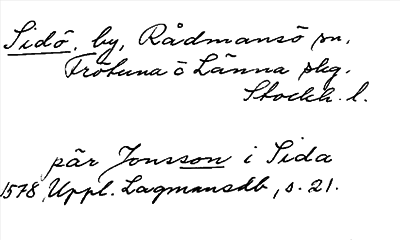 Sidö, by, Rådmansö sn.
Frötuna o Länna skg.
Stockh. l.
pär Jonsson i Sida
1578, Uppl. Lagmansdb, s. 21.